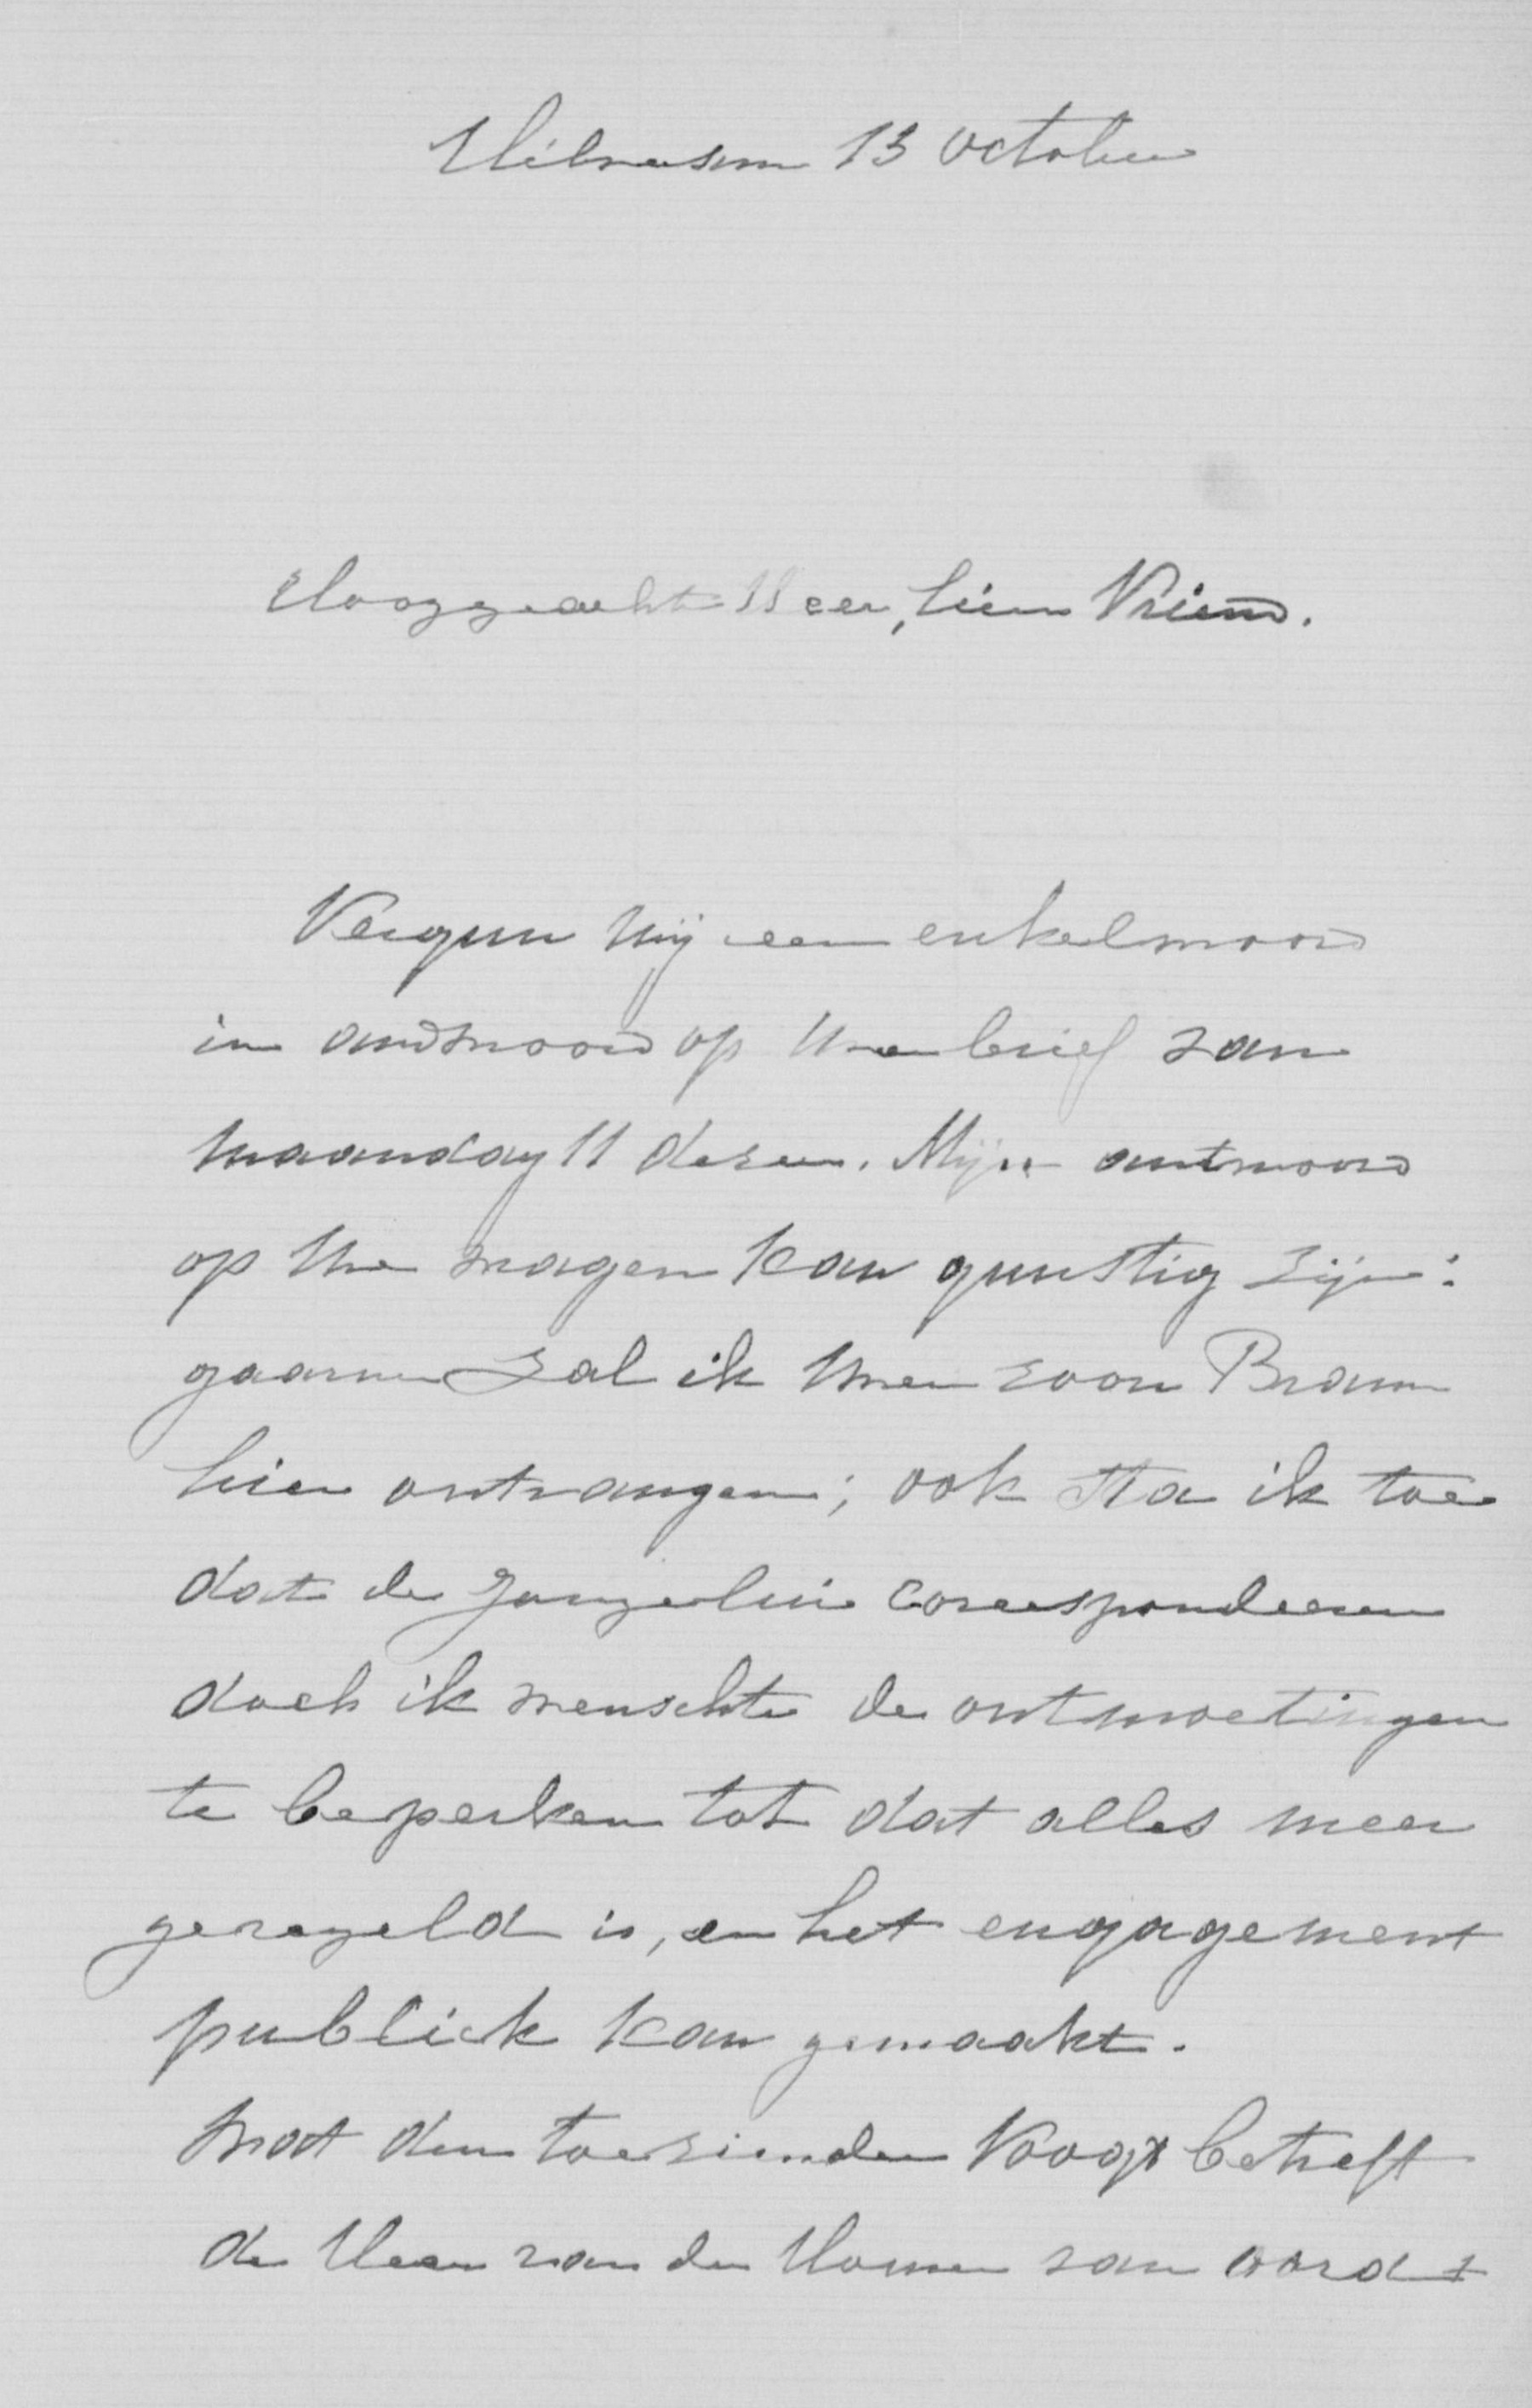 Hilversum 13 October
Hooggeachte Heer, lieve Vriend.
Vergun mij een enkel woord
in andwoord op Uwen brief van
maandag 11 dezer. Mijn antwoord
op Uwe vragen kan gunstig zijn:
gaarne zal ik Uwen zoon Bram
hier ontvangen; ook sta ik toe
dat de Jongelui correspondeeren
doch ik wenschte de ontmoetingen
te beperken tot dat alles meer
geregeld is, en het engagement
publick kan gemaakt.
Wat den toezienden Voogt betreft
de Heer van den Honert van